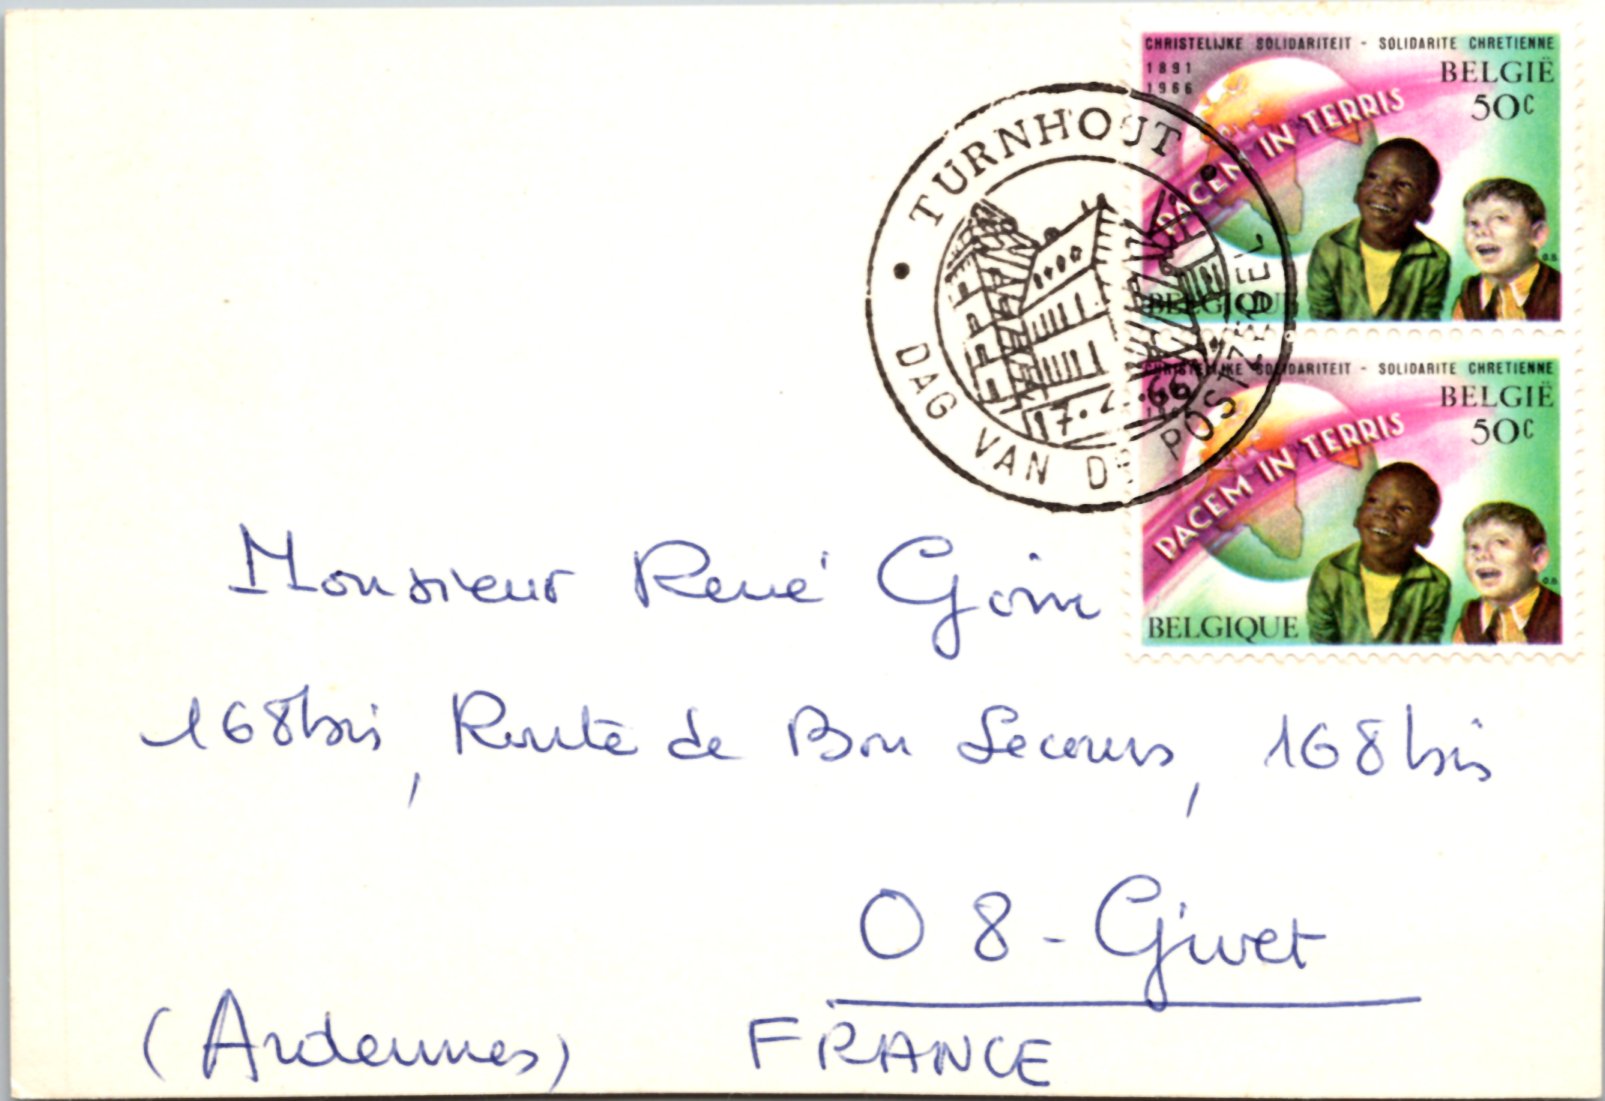 CHRISTELIJKE SOLIDARITEIT - SOLIDARITE CHRETIENNE
1891
1966
BELGIË
50C
PACEM IN TERRIS
BELGIQUE
TURNHOUT
DAG VAN DE POSTZEGEL
CHRISTELIJKE SOLIDARITEIT - SOLIDARITE CHRETIENNE
BELGIË
50C
PACEM IN TERRIS
BELGIQUE
Monsieur René Goin
168bis, Route de Bon Secours, 168bis
08 - Givet
(Ardennes) FRANCE